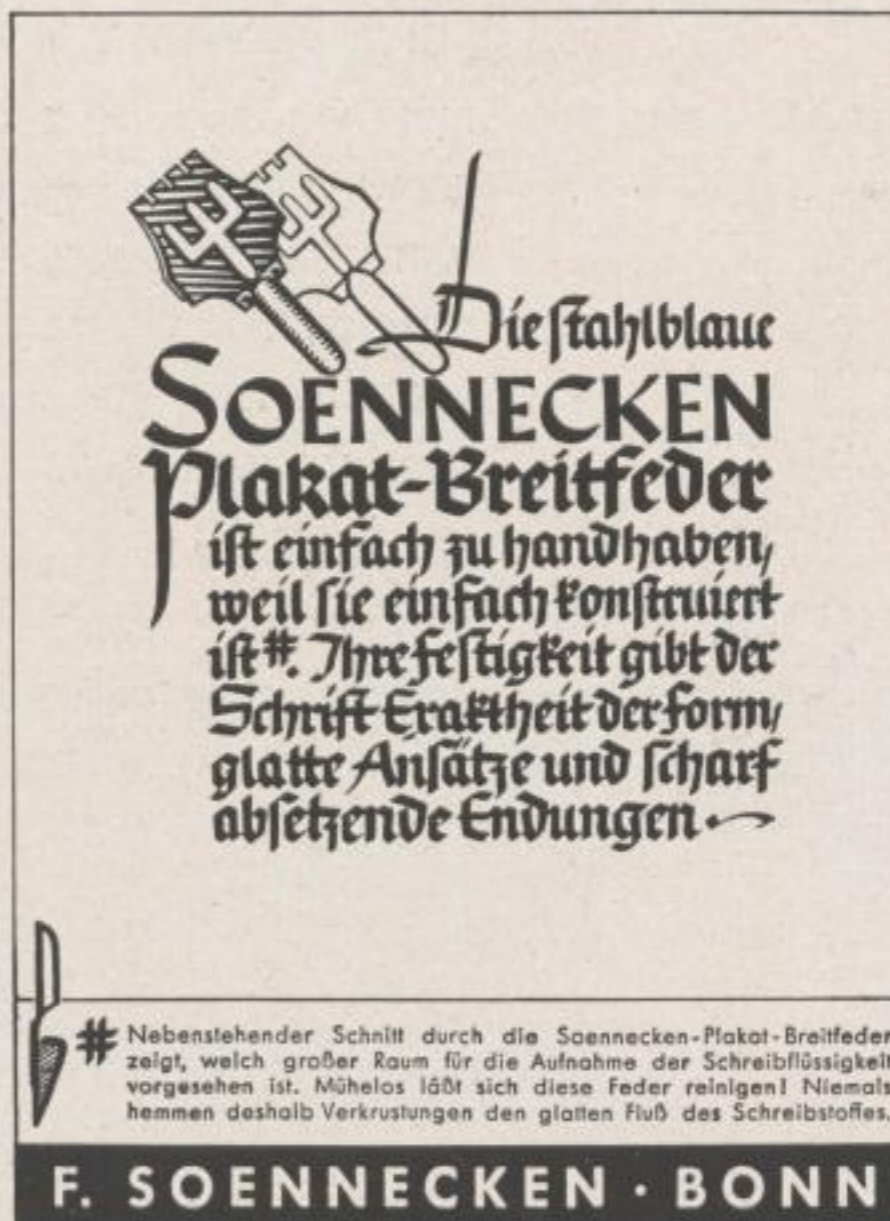 Die stahlblaue
SOENNECKEN
Plakat-Breitfeder
ist einfach zu handhaben,
weil sie einfach konstruiert
ist #. Ihre Festigkeit gibt der
Schrift Exaktheit der Form,
glatte Ansätze und scharf
absetzende Endungen.
# Nebenstehender Schnitt durch die Soennecken-Plakat-Breitfeder
zeigt, welch großer Raum für die Aufnahme der Schreibflüssigkeit
vorgesehen ist. Mühelos läßt sich diese Feder reinigen! Niemals
hemmen deshalb Verkrustungen den glatten Fluß des Schreibstoffes.
F. SOENNECKEN · BONN